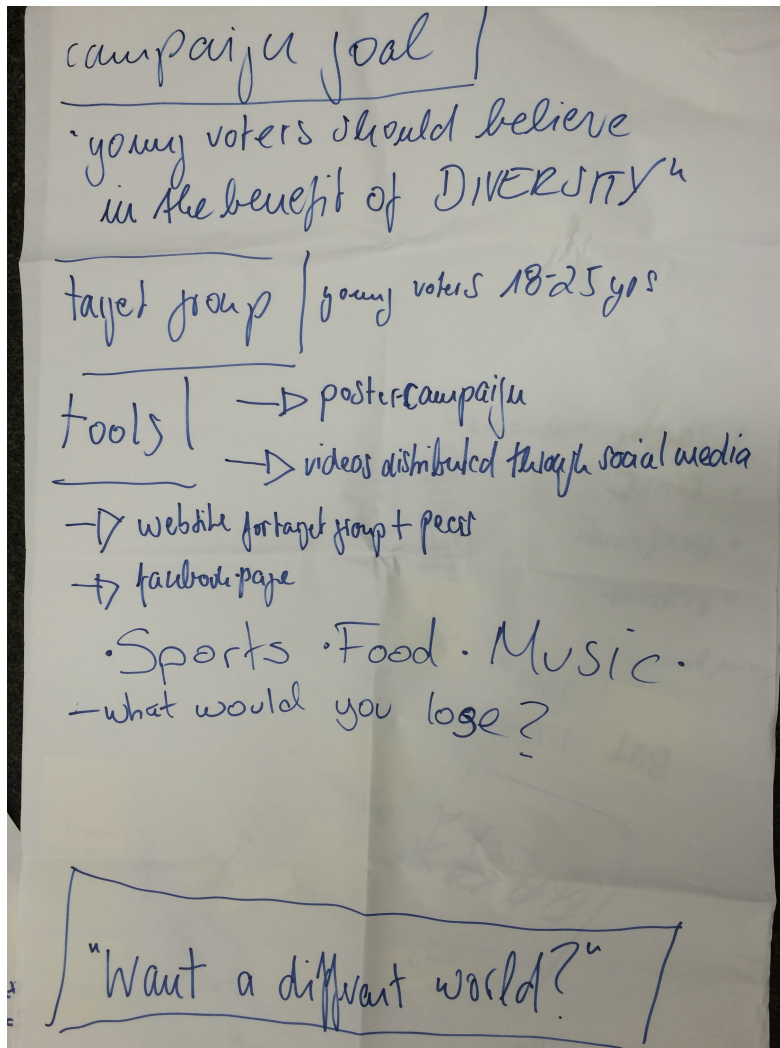 campaign goal
"young voters should believe
in the benefit of DIVERSITY"
target group | young voters 18-25 yrs
tools → poster-campaign
→ videos distributed through social media
→ website for target group + peers
→ facebook-page
· Sports · Food · Music ·
- what would you lose?
"Want a different world?"